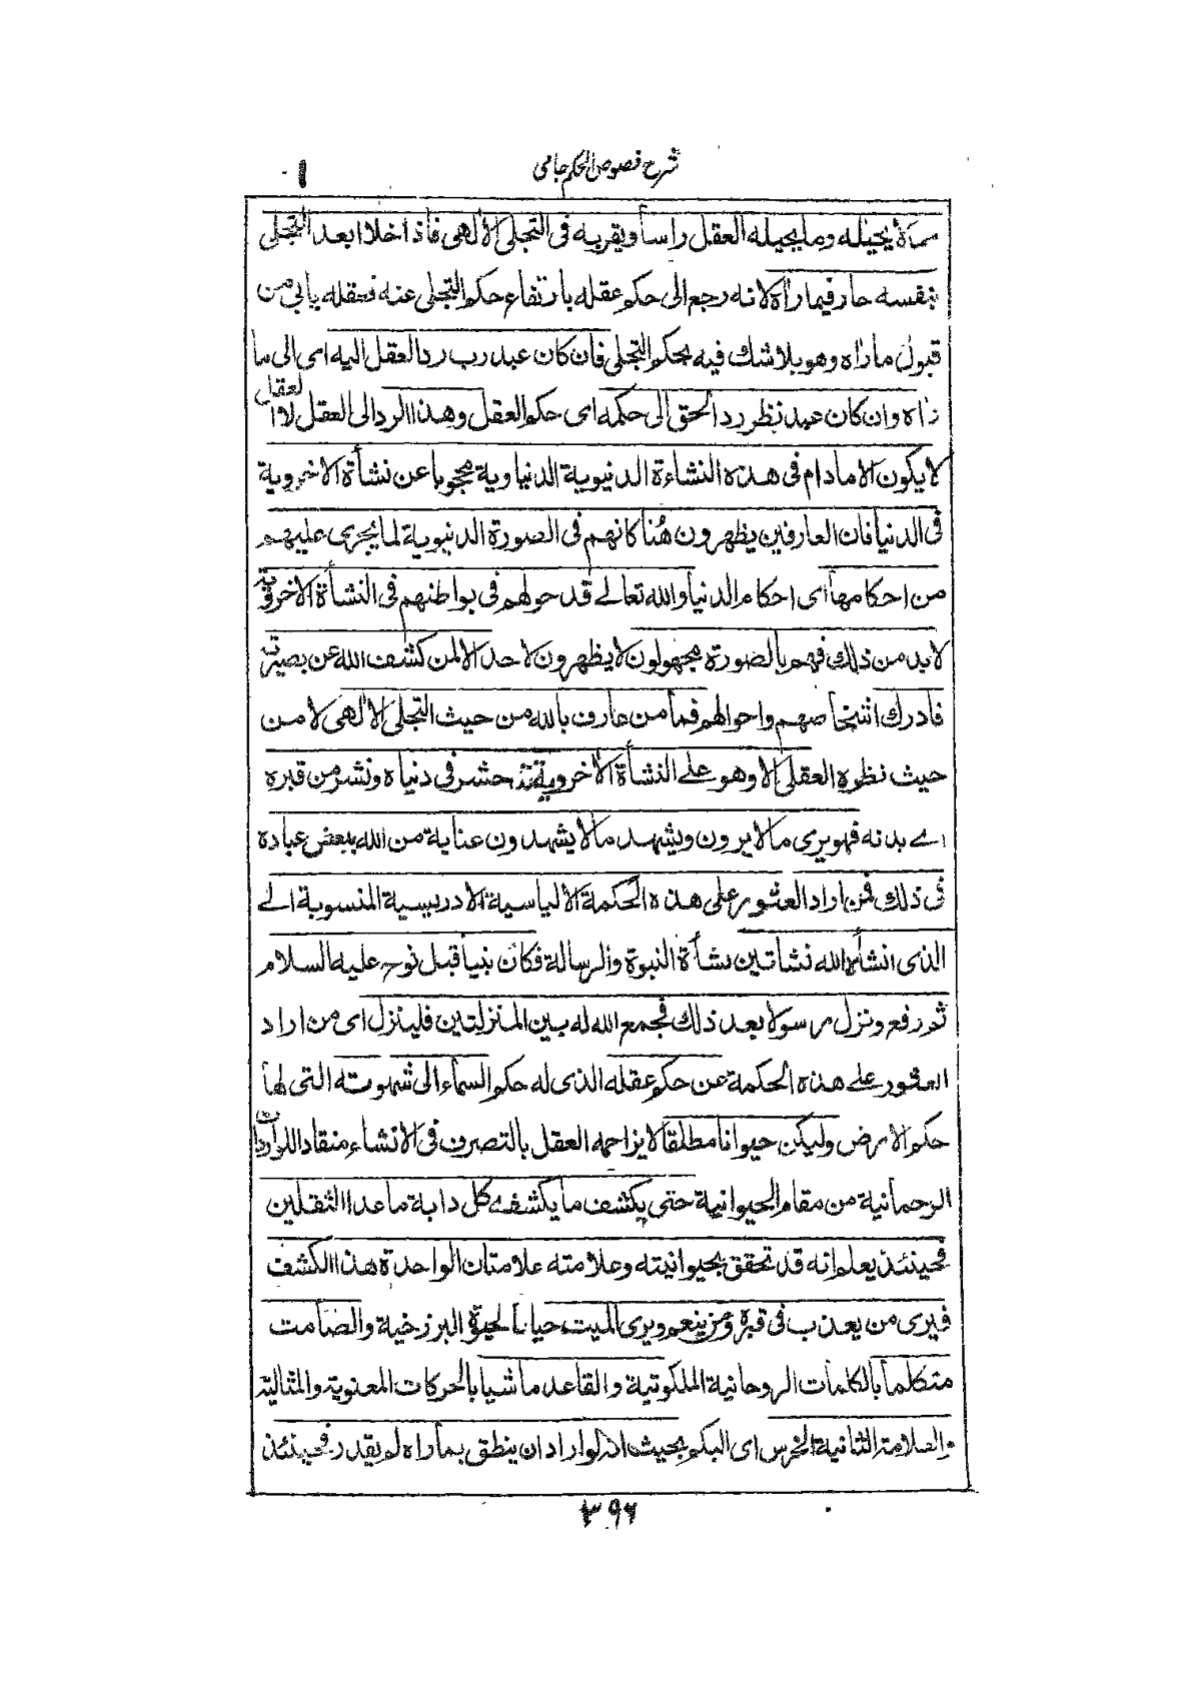 شرح فصوص الحكم جامى
١
مما يحيله وما يحيله العقل راسا ويقر به فى التجلى الالهى فاذا خلا بعد التجلى
بنفسه حار فيما راه لانه رجع الى حكم عقله بارتفاع حكم التجلى عنه فعقله يابى من
قبول ماراه وهو بلاشك فيه بحكم التجلى فان كان عبد رب رد العقل اليه اى الى ما
راه وان كان عبد نظر رد الحق الى حكمه اى حكم العقل وهذا الرد الى العقل لا العقل
لا يكون الا مادام فى هذه النشاءة الدنيوية الدنياوية محجوبا عن نشأة الاخروية
فى الدنيا فان العارفين يظهرون هنا كانهم فى الصورة الدنيوية لما يجرى عليهم
من احكامها اى احكام الدنيا والله تعالے قد حولهم فى بواطنهم فى النشأة الاخروية
لا بد من ذلك فهم بالصورة مجهولون لا يظهرون لاحد الا لمن كشف الله عن بصيرته
فادرك اشخاصهم واحوالهم فما من عارف بالله من حيث التجلى الالهى لا من
حيث نظره العقلى الا وهو علے النشأة الاخروية قد حشر فى دنياه ونشر من قبره
اے بدنه فهو يرى مالا يرون ويشهد مالا يشهدون عناية من الله ببعض عباده
فى ذلك فمن اراد العثور على هذه الحكمة الالياسية الادريسية المنسوبة الے
الذى انشأه الله نشاتين نشأة النبوة والرسالة فكان نبيا قبل نوح عليه السلام
ثم رفع ونزل رسولا بعد ذلك فجمع الله له بين المنزلتين فلينزل اى من اراد
العثور علے هذه الحكمة عن حكم عقله الذى له حكم السماء الى شهوته التى لها
حكم الارض وليكن حيوانا مطلقا لا يزاحمه العقل بالتصرف فى الانشاء منقادا للواردات
الرحمانية من مقام الحيوانية حتى يكشف ما يكشفه كل دابة ماعدا الثقلين
فحينئذ يعلم انه قد تحقق بحيوانيته وعلامته علامتان الواحدة هذا الكشف
فيرى من يعذب فى قبره ومن ينعم ويرى الميت حيا بالحيوة البرزخية والصامت
متكلما بالكلمات الروحانية الملكوتية والقاعد ماشيا بالحركات المعنوية والمثالية
والعلامة الثانية الخرس اى البكم بحيث انه لو اراد ان ينطق بماراه لم يقدر فحينئذ
٣٩٦